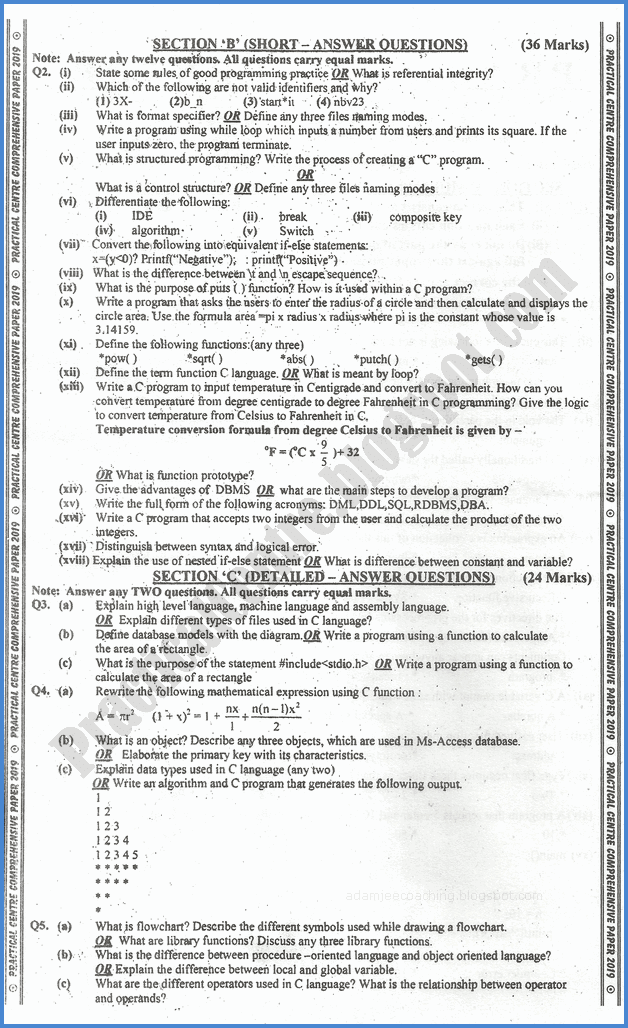 SECTION 'B' (SHORT – ANSWER QUESTIONS) (36 Marks)
Note: Answer any twelve questions. All questions carry equal marks.
Q2. (i) State some rules of good programming practice OR What is referential integrity?
(ii) Which of the following are not valid identifiers and why?
(1) 3X- (2)b_n (3)'start*it (4) nbv23
(iii) What is format specifier? OR Define any three files naming modes.
(iv) Write a program using while loop which inputs a number from users and prints its square. If the
user inputs zero, the program terminate.
(v) What is structured programming? Write the process of creating a "C" program.
OR
What is a control structure? OR Define any three files naming modes
(vi) Differentiate the following:
(i) IDE (ii) break (iii) composite key
(iv) algorithm (v) Switch
(vii) Convert the following into equivalent if-else statements:
x=(y<0)? Printf("Negative"); : printf("Positive")
(viii) What is the difference between \t and \n escape sequence?
(ix) What is the purpose of puts ( ) function? How is it used within a C program?
(x) Write a program that asks the users to enter the radius of a circle and then calculate and displays the
circle area. Use the formula area =pi x radius x radius where pi is the constant whose value is
3.14159.
(xi) Define the following functions:(any three)
*pow( ) *sqrt( ) *abs( ) *putch( ) *gets( )
(xii) Define the term function C language. OR What is meant by loop?
(xiii) Write a C program to input temperature in Centigrade and convert to Fahrenheit. How can you
convert temperature from degree centigrade to degree Fahrenheit in C programming? Give the logic
to convert temperature from Celsius to Fahrenheit in C,
Temperature conversion formula from degree Celsius to Fahrenheit is given by –
°F = (°C x 9/5 )+ 32
OR What is function prototype?
(xiv) Give the advantages of DBMS OR what are the main steps to develop a program?
(xv) Write the full form of the following acronyms: DML,DDL,SQL,RDBMS,DBA.
(xvi) Write a C program that accepts two integers from the user and calculate the product of the two
integers.
(xvii) Distinguish between syntax and logical error.
(xviii) Explain the use of nested if-else statement OR What is difference between constant and variable?
SECTION 'C' (DETAILED – ANSWER QUESTIONS) (24 Marks)
Note: Answer any TWO questions. All questions carry equal marks.
Q3. (a) Explain high level language, machine language and assembly language.
OR Explain different types of files used in C language?
(b) Define database models with the diagram.OR Write a program using a function to calculate
the area of a rectangle.
(c) What is the purpose of the statement #include<stdio.h> OR Write a program using a function to
calculate the area of a rectangle
Q4. (a) Rewrite the following mathematical expression using C function :
A = πr² (1 + x)² = 1 + nx/1 + n(n−1)x²/2
(b) What is an object? Describe any three objects, which are used in Ms-Access database.
OR Elaborate the primary key with its characteristics.
(c) Explain data types used in C language (any two)
OR Write an algorithm and C program that generates the following output.
1
1 2
1 2 3
1 2 3 4
1 2 3 4 5
* * * * *
* * * *
* *
*
Q5. (a) What is flowchart? Describe the different symbols used while drawing a flowchart.
OR What are library functions? Discuss any three library functions.
(b) What is the difference between procedure –oriented language and object oriented language?
OR Explain the difference between local and global variable.
(c) What are the different operators used in C language? What is the relationship between operator
and operands?
PRACTICAL CENTRE COMPREHENSIVE PAPER 2019 PRACTICAL CENTRE COMPREHENSIVE PAPER 2019 PRACTICAL CENTRE COMPREHENSIVE PAPER 2019 PRACTICAL CENTRE COMPREHENSIVE PAPER 2019
PRACTICAL CENTRE COMPREHENSIVE PAPER 2019 PRACTICAL CENTRE COMPREHENSIVE PAPER 2019 PRACTICAL CENTRE COMPREHENSIVE PAPER 2019 PRACTICAL CENTRE COMPREHENSIVE PAPER 2019
adamjeecoaching.blogspot.com